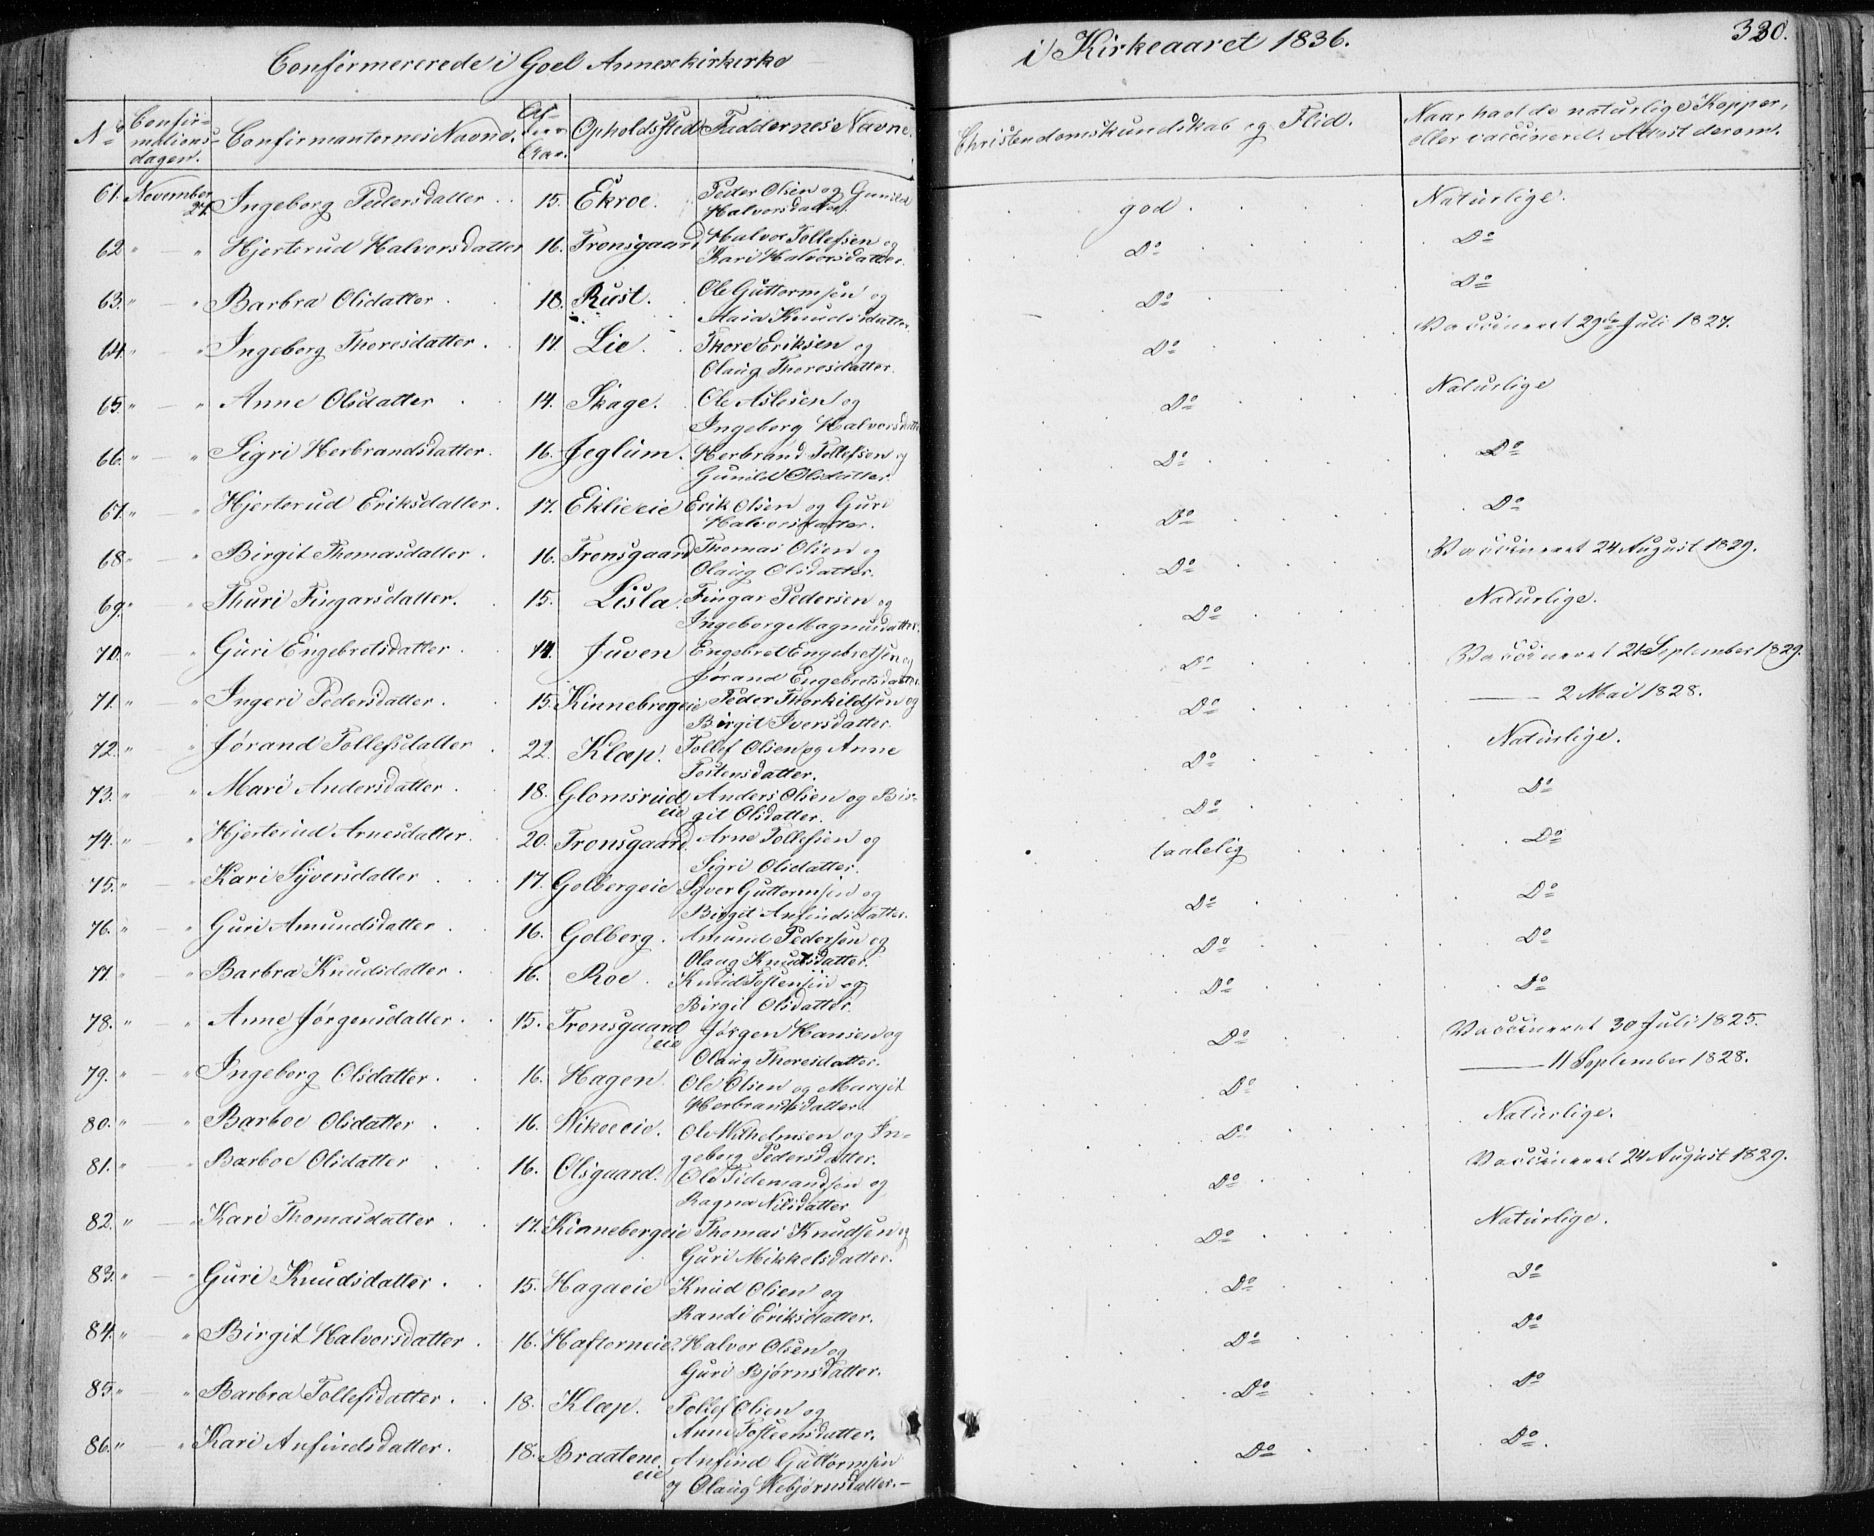 Confirmererede i Goel Annexkirkirke
i Kirkeaaret 1836.
330.
No Confirmationsdagen. Confirmanternes Navne. Aar. Opholdssted Fæddernes Navne.
Christendomskundskab og Flid.
Naar havt de naturlige Kopper, eller vaccineret. Attest derom.
61. November 27. Ingeborg Pedersdatter 15. Ekroe. Peder Olsen og Gunild Halvorsdatter. god. Naturlige.
62 " — " Hjerterud Halvorsdatter 16. Tronsgaard Halvor Tollefsen og Kari Halvorsdatter. Do Do
63. " — " Barbra Olsdatter 18. Rust. Ole Guttormsen og Knudsdatter. Do Do
64. " — " Ingeborg Thoresdatter 17. Lie. Thore Eriksen og Olaug Thoresdatter. Do Vaccineret 29de Juli 1827.
65. " — " Anne Olsdatter 14. Skage. Ole Aslesen og Ingeborg Halvorsdatter Do Naturlige
66. " — " Sigri Herbrandsdatter. 16. Jeglum. Herbrand Tollefsen og Gunild Olsdatter. Do Do
67. " — " Hjerterud Eriksdatter. 17. Eklieeie Erik Olsen og Guri Halvorsdatter. Do Do
68 " — " Birgit Thomasdatter 16. Tronsgaard Thomas Olsen og Olaug Olsdatter. Do Vaccineret 24 August 1829.
69. " — " Thuri Fingarsdatter. 15. Lisla. Fingar Pedersen og Ingeborg Magnusdatter. Do Naturlige.
70. " — " Guri Engebretsdatter 14. Juven Engebret Engebretsen og Jørand Engebretsdatter Do Vaccineret 21 September 1829.
71. " — " Ingeri Pedersdatter. 15. Kinnebregeie Peder Thorkildsen og Birgit Iversdatter. Do — 2 Mai 1828.
72. " — " Jørand Tollefsdatter 22. Klæp. Tollef Olsen og Anne Tostensdatter. Do Naturlige.
73. " — " Mari Andersdatter 18. Glomsrud eie Anders Olsen og Birgit Olsdatter. Do Do
74. " — " Hjerterud Arnesdatter. 20. Tronsgaard. Arne Tollefsen og Sigri Olsdatter. taalelig Do
75. " — " Kari Syversdatter 17. Golbergeie Syver Guttormsen og Birgit Anfindsdatter. Do Do
76. " — " Guri Amundsdatter 16. Golberg. Amund Pedersen og Olaug Knudsdatter. Do Do
77. " — " Barbra Knudsdatter 16. Roe. Knud Tostensen og Birgit Olsdatter. Do Do
78. " — " Anne Jørgensdatter 15. Tronsgaard eie Jørgen Hansen og Olaug Thoresdatter. Do Vaccineret 30 Juli 1825.
79. " — " Ingeborg Olsdatter. 16. Hagen. Ole Olsen og Margit Herbrandsdatter. Do — 11 September 1828.
80. " — " Barboe Olsdatter 16. Wikeeie. Ole Wilhelmsen og Ingeborg Pedersdatter. Do Naturlige.
81. " — " Barboe Olsdatter 16. Olsgaard. Ole Tidemandsen og Ragna Nilsdatter Do Vaccineret 24 August 1829.
82. " — " Kari Thomasdatter 17. Kinnebergeie Thomas Knudsen og Guri Mikkelsdatter. Do Naturlige.
83. " — " Guri Knudsdatter. 15. Hagaeie Knud Olsen og Randi Eriksdatter. Do Do
84. " — " Birgit Halvorsdatter 16. Haftorneie. Halvor Olsen og Guri Bjørnsdatter. Do Do
85. " — " Barbra Tollefsdatter. 18. Klæp. Tollef Olsen og Anne Tosteensdatter. Do Do
86. " — " Kari Anfindsdatter. 18. Braatene eie Anfind Guttormsen og Olaug Webjørnsdatter.— Do Do.